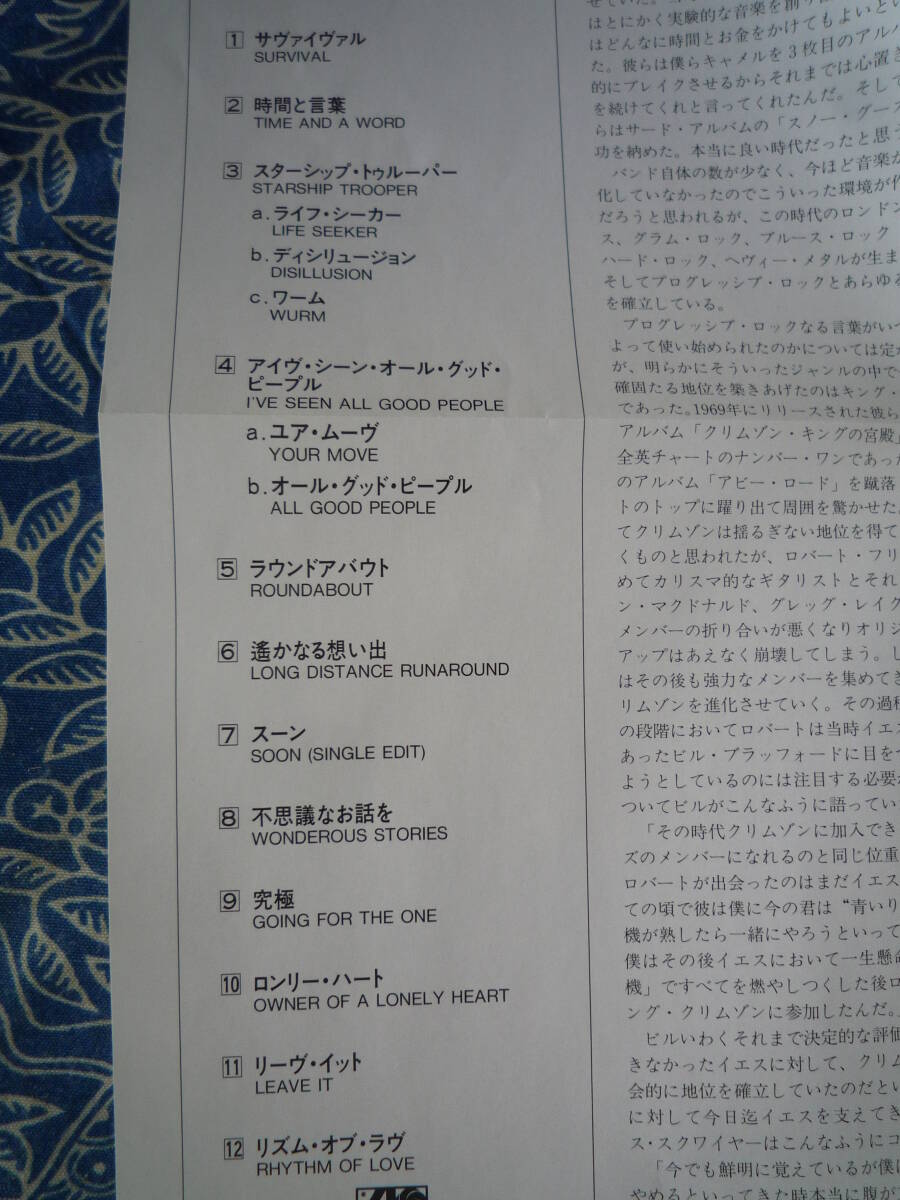 1 サヴァイヴァル
SURVIVAL
2 時間と言葉
TIME AND A WORD
3 スターシップ・トゥルーパー
STARSHIP TROOPER
a.ライフ・シーカー
LIFE SEEKER
b.ディシリュージョン
DISILLUSION
c.ワーム
WURM
4 アイヴ・シーン・オール・グッド・
ピープル
I'VE SEEN ALL GOOD PEOPLE
a.ユア・ムーヴ
YOUR MOVE
b.オール・グッド・ピープル
ALL GOOD PEOPLE
5 ラウンドアバウト
ROUNDABOUT
6 遙かなる想い出
LONG DISTANCE RUNAROUND
7 スーン
SOON (SINGLE EDIT)
8 不思議なお話を
WONDEROUS STORIES
9 究極
GOING FOR THE ONE
10 ロンリー・ハート
OWNER OF A LONELY HEART
11 リーヴ・イット
LEAVE IT
12 リズム・オブ・ラヴ
RHYTHM OF LOVE
はとにかく実験的な音楽を創り
はどんなに時間とお金をかけてもよいとい
た。彼らは僕らキャメルを3枚目のアルバ
的にブレイクさせるからそれまでは心置き
を続けてくれと言ってくれたんだ。そして
らはサード・アルバムの「スノー・グース
功を納めた。本当に良い時代だったと思う
バンド自体の数が少なく、今ほど音楽が
化していなかったのでこういった環境が作
だろうと思われるが、この時代のロンドン
ス、グラム・ロック、ブルース・ロック
ハード・ロック、ヘヴィー・メタルが生ま
そしてプログレッシブ・ロックとあらゆる
を確立している。
プログレッシブ・ロックなる言葉がいつ
よって使い始められたのかについては定か
が、明らかにそういったジャンルの中で
確固たる地位を築きあげたのはキング・
であった。1969年にリリースされた彼ら
アルバム「クリムゾン・キングの宮殿」
全英チャートのナンバー・ワンであった
のアルバム「アビー・ロード」を蹴落
トのトップに躍り出て周囲を驚かせた。
てクリムゾンは揺るぎない地位を得て
くものと思われたが、ロバート・フリ
めてカリスマ的なギタリストとそれ
ン・マクドナルド、グレッグ・レイク
メンバーの折り合いが悪くなりオリジ
アップはあえなく崩壊してしまう。し
はその後も強力なメンバーを集めてき
リムゾンを進化させていく。その過程
の段階においてロバートは当時イエス
あったビル・ブラッフォードに目をつ
ようとしているのには注目する必要が
ついてビルがこんなふうに語ってい
「その時代クリムゾンに加入でき
ズのメンバーになれるのと同じ位重
ロバートが出会ったのはまだイエス
ての頃で彼は僕に今の君は“青いり
機が熟したら一緒にやろうといって
僕はその後イエスにおいて一生懸命
機」ですべてを燃やしつくした後ロ
ング・クリムゾンに参加したんだ。」
ビルいわくそれまで決定的な評価
きなかったイエスに対して、クリム
会的に地位を確立していたのだとい
に対して今日迄イエスを支えてき
ス・スクワイヤーはこんなふうにコ
「今でも鮮明に覚えているが僕に
やめるといってきた時本当に腹が